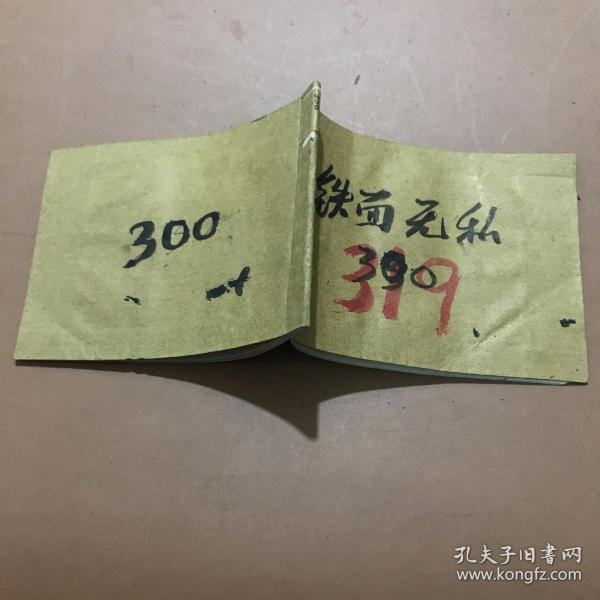 300
铁面无私
300
319
孔夫子旧書网
www.kongfz.com